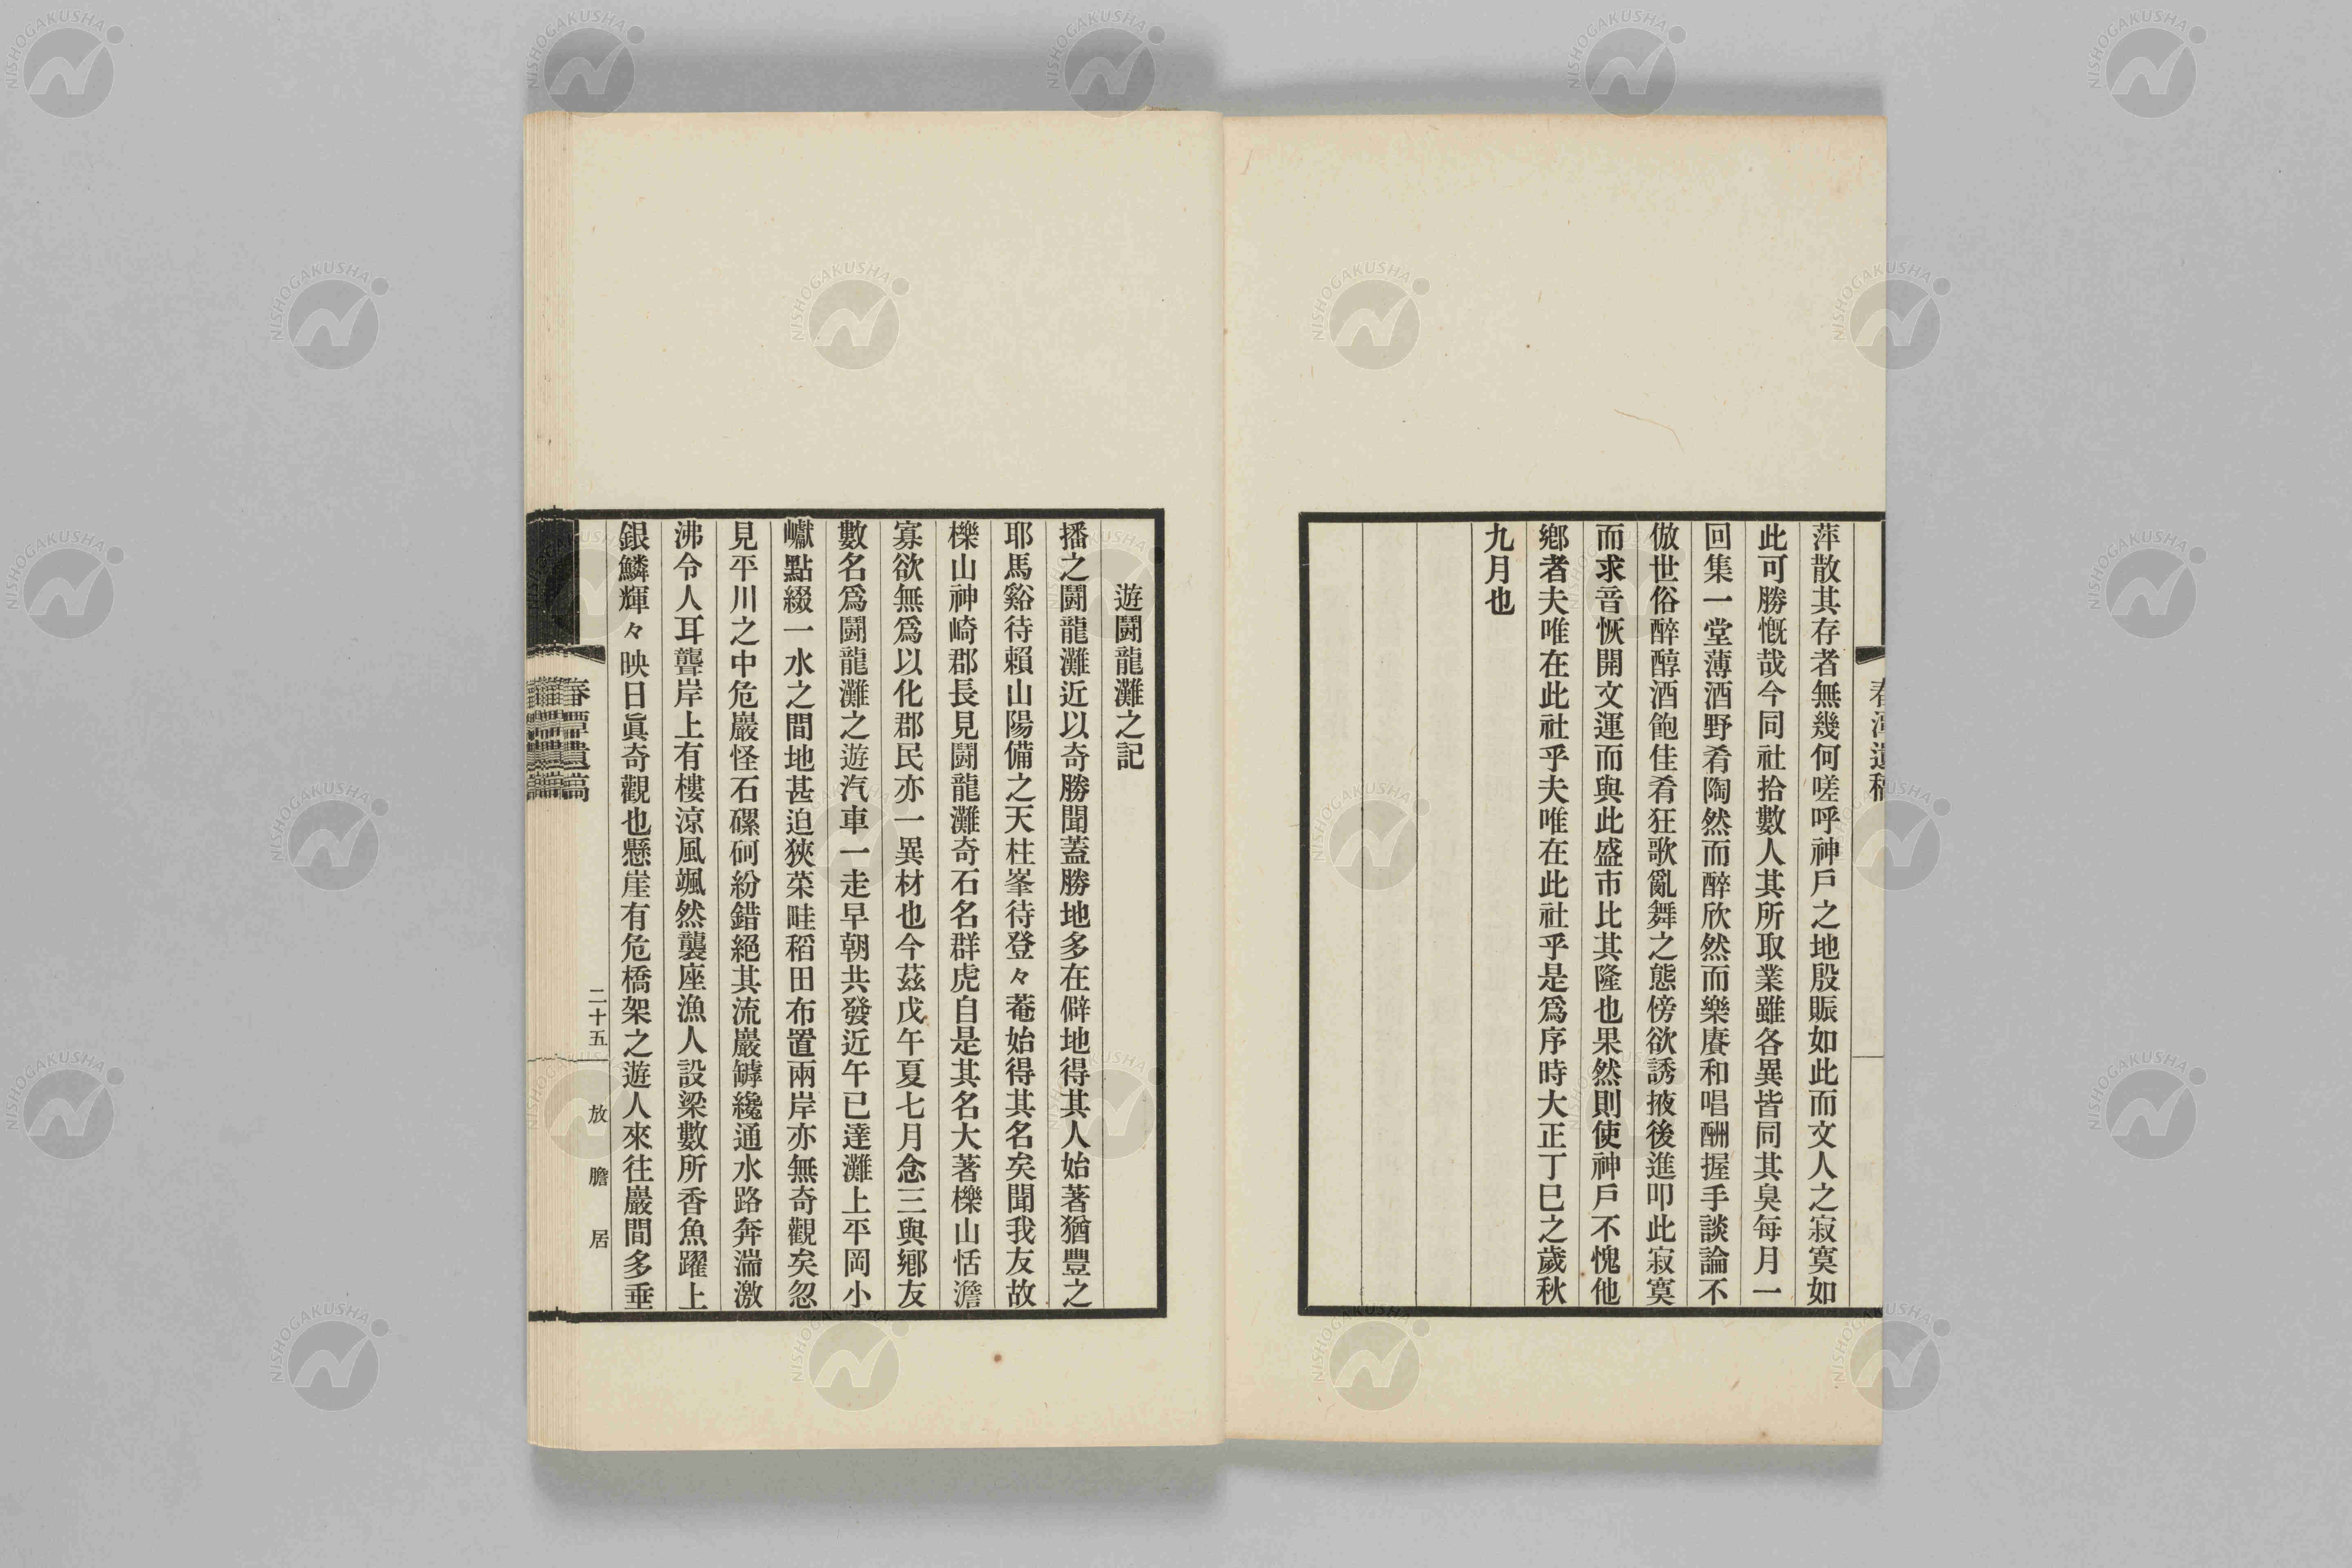 春潭遺稿
萍散其存者無幾何嗟呼神戶之地殷賑如此而文人之寂寞如
此可勝慨哉今同社拾數人其所取業雖各異皆同其臭每月一
回集一堂薄酒野肴陶然而醉欣然而樂賡和唱酬握手談論不
倣世俗醉醇酒飽佳肴狂歌亂舞之態傍欲誘掖後進叩此寂寞
而求音恢開文運而與此盛市比其隆也果然則使神戶不愧他
鄕者夫唯在此社乎夫唯在此社乎是爲序時大正丁巳之歲秋
九月也
遊鬪龍灘之記
播之鬪龍灘近以奇勝聞蓋勝地多在僻地得其人始著猶豐之
耶馬谿待賴山陽備之天柱峯待登々菴始得其名矣聞我友故
櫟山神崎郡長見鬪龍灘奇石名群虎自是其名大著櫟山恬澹
寡欲無爲以化郡民亦一異材也今茲戊午夏七月念三與鄕友
數名爲鬪龍灘之遊汽車一走早朝共發近午已達灘上平岡小
巘點綴一水之間地甚迫狹菜畦稻田布置兩岸亦無奇觀矣忽
見平川之中危巖怪石磥砢紛錯絕其流巖罅纔通水路奔湍激
沸令人耳聾岸上有樓涼風颯然襲座漁人設梁數所香魚躍上
銀鱗輝々映日眞奇觀也懸崖有危橋架之遊人來往巖間多垂
春潭遺稿
二十五
放膽居
NISHOGAKUSHA